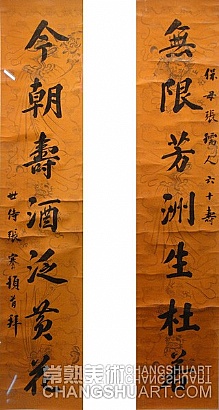 保母張孺人六十壽
無限芳洲生杜若
今朝壽酒泛黄花
世侍張謇頓首拜
常熟美術 CHANGSHUART
CHANGSHUART.COM